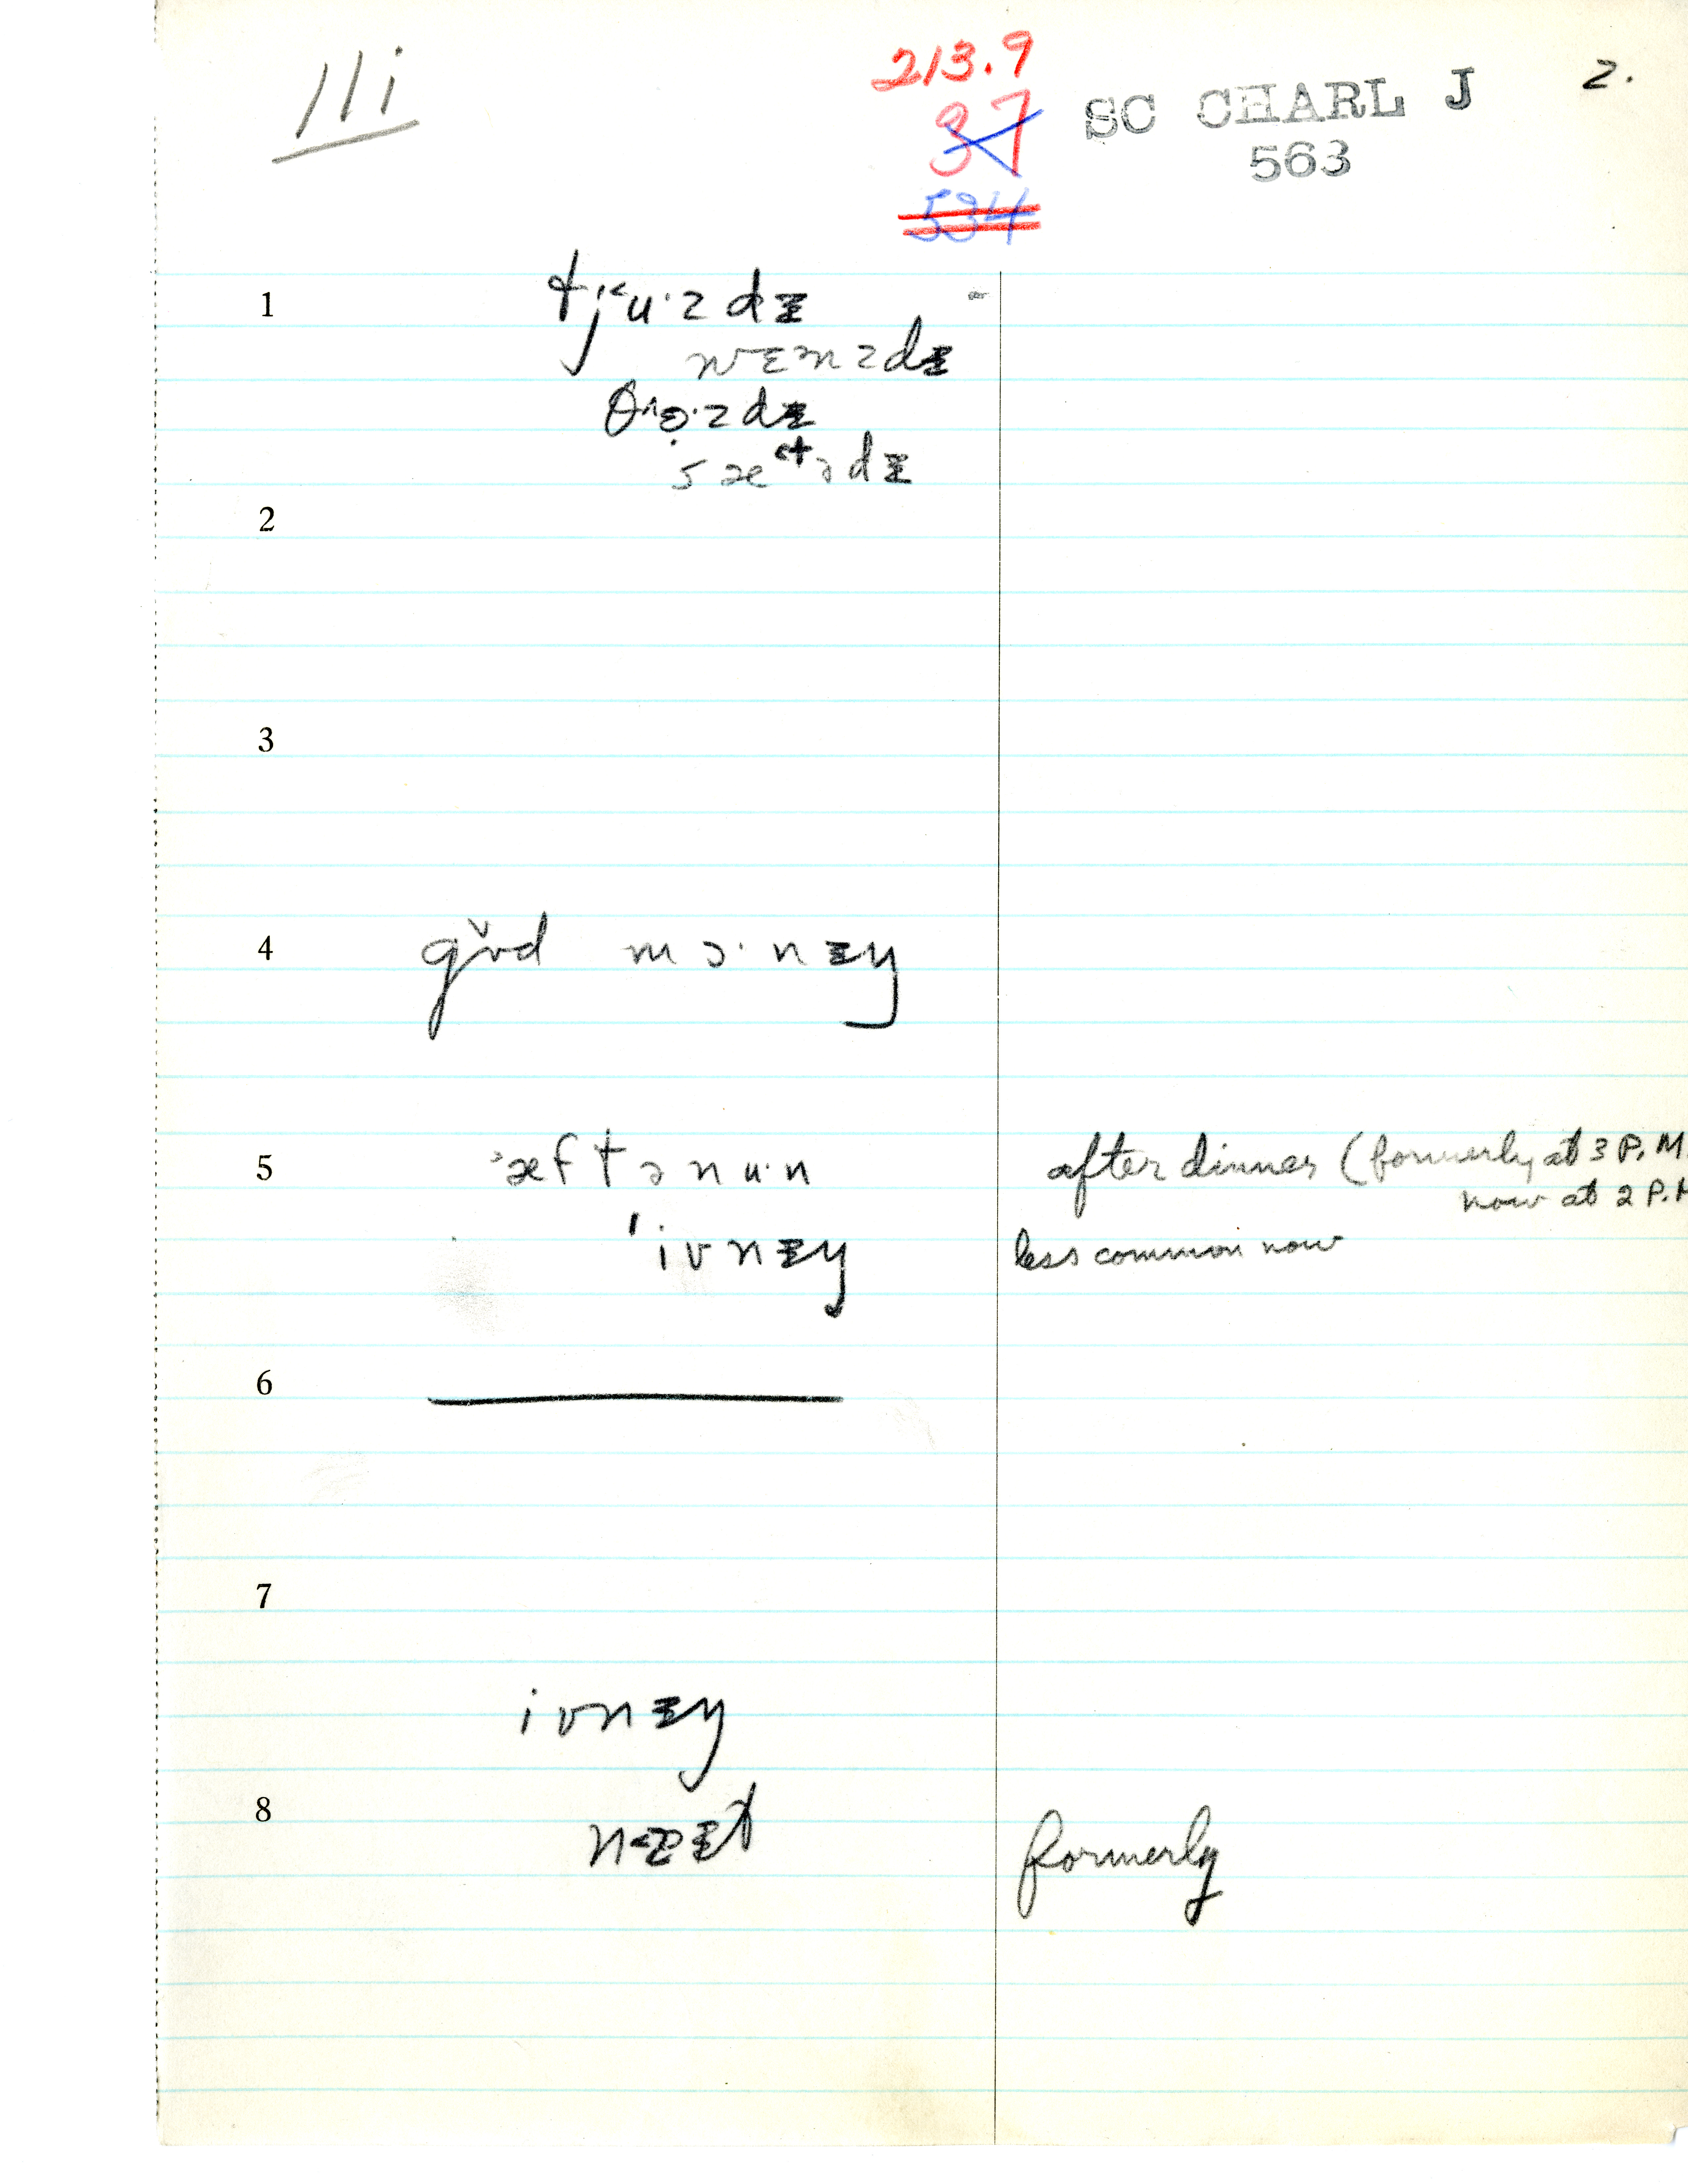 111i
213.9
37
534
SC CHARL J
563
2.
1 tj˂u·zdɪ
wɛnzdɪ
θ˄ɜ·zdɪ
sæ˂tədɪ
2
3
4 gʊ̌d mɔ·nɪŋ
5 ˈæftənu·n after dinner (formerly at 3 P.M.
now at 2 P.M
ˈivnɪŋ less common now
6
7
ivnɪŋ
8 formerly